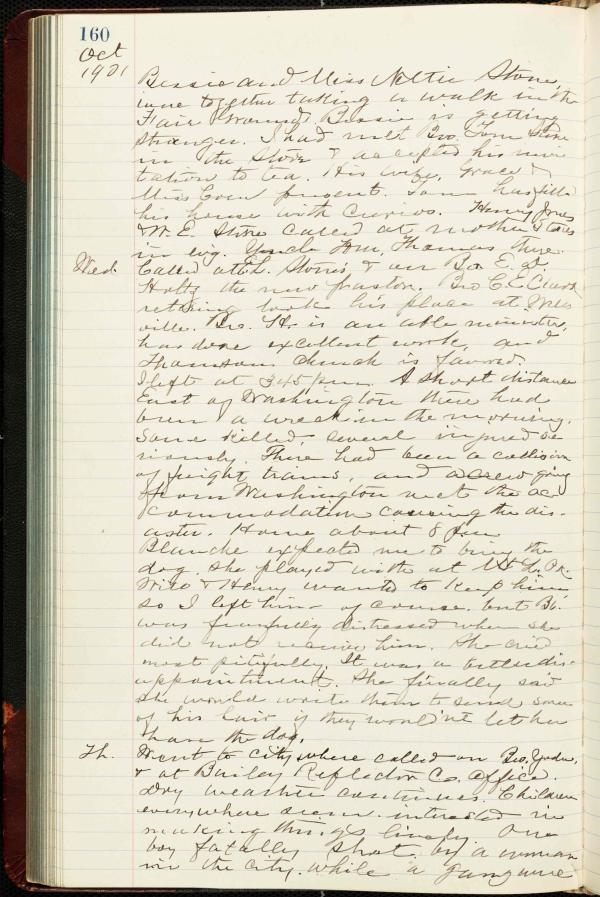 160
Oct
1901
Bessie and Miss Nettie Stone,
were together taking a walk in the
Fair Ground. Bessie is getting
stronger. I had met Bro. Tom Stone
in the Store & accepted his invi
tation to tea. His wife, Grace &
Miss Coen present. Tom has filled
his house with Curios. Henry Jones
& W. E. Stone called at mother Stones
in evg. Uncle Thomas there.
Wed. Called at L. Stone's & on Bro. E. D.
Holtz the new pastor. Bro C. E. Clark
retiring took his place at
ville. Bro. H. is an able minister,
has done excellent work, and
Thomson Church is favored.
I left at 3.45 p.m. A short distance
East of Washington there had
been a wreck in the morning.
Some killed, several injured se
riously. There had been a collision
of freight trains, and a crew going
from Washington met the ac
commodation causing the dis-
aster. Home about 8 pm
Blanche expected me to bring the
dog she played with at Mt. L. Pk.
Will & Henry wanted to keep him
so I left him of course. but Bl.
was fearfully distressed when she
did not receive him. She cried
most pitifully. It was a bitter dis-
appointment. She finally said
she would write them to send some
of his hair if they wouldn't let her
have the dog.
Th. Went to city where called on Bro. Yoder,
& at Bailey Reflector Co. office.
Dry weather continues. Children
everywhere seem interested in
making things lively. One
boy fatally shot by a woman
in the city while a gang were